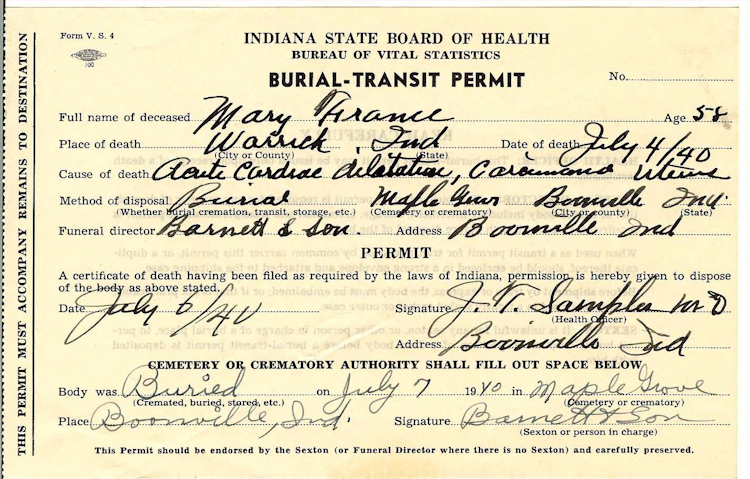 Form V. S. 4
INDIANA STATE BOARD OF HEALTH
BUREAU OF VITAL STATISTICS
100
BURIAL-TRANSIT PERMIT
No.
Full name of deceased Mary France Age 58
Place of death Warrick, Ind Date of death July 4/40
(City or County) (State)
Cause of death Acute Cardiac dilatation, Carcinoma Uterus
Method of disposal Burial Maple Grove Boonville Ind.
(Whether burial cremation, transit, storage, etc.) (Cemetery or crematory) (City or county) (State)
Funeral director Barnett & Son. Address Boonville Ind
PERMIT
A certificate of death having been filed as required by the laws of Indiana, permission is hereby given to dispose
of the body as above stated.
Date July 6/40 Signature J. T. Samples M D
(Health Officer)
Address Boonville Ind
CEMETERY OR CREMATORY AUTHORITY SHALL FILL OUT SPACE BELOW
Body was Buried on July 7 1940 in Maple Grove
(Cremated, buried, stored, etc.) (Cemetery or crematory)
Place Boonville, Ind. Signature Barnett & Son
(Sexton or person in charge)
This Permit should be endorsed by the Sexton (or Funeral Director where there is no Sexton) and carefully preserved.
THIS PERMIT MUST ACCOMPANY REMAINS TO DESTINATION